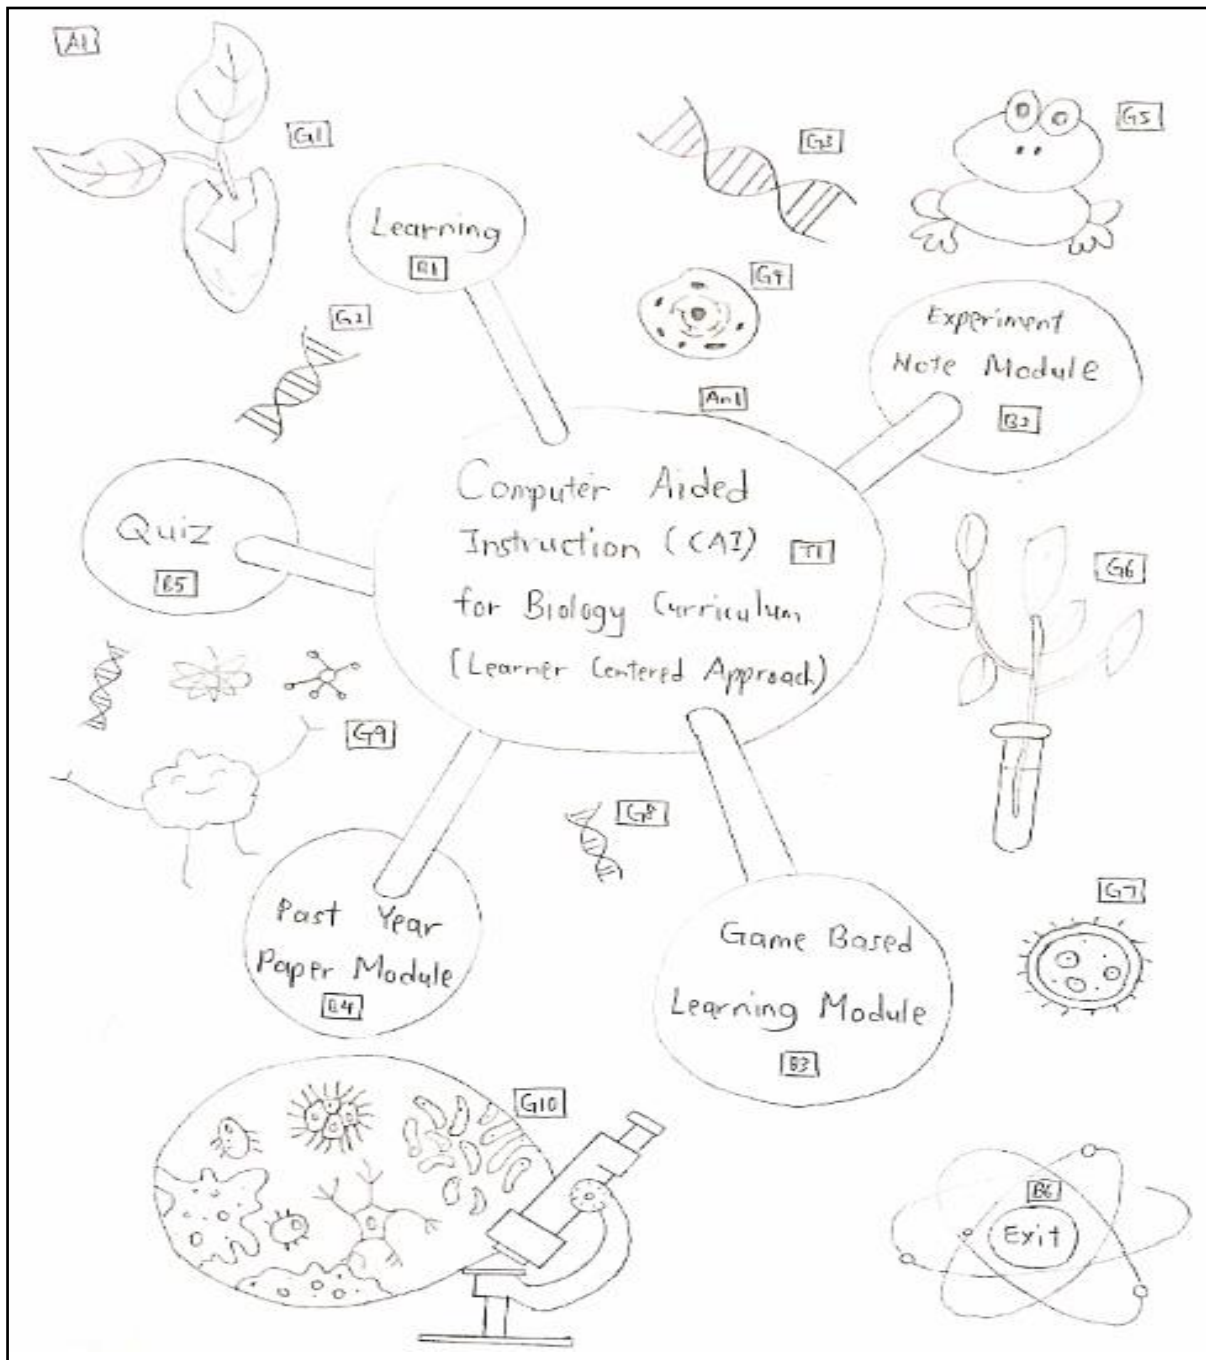 A1
G1
G3
G5
Learning
B1
G4
G2
Experiment
Note Module
B2
An1
Computer Aided
Instruction (CAI)
T1
for Biology Curriculum
(Learner Centered Approach)
Quiz
B5
G6
G9
G8
Past Year
Paper Module
B4
G7
Game Based
Learning Module
B3
G10
B6
Exit